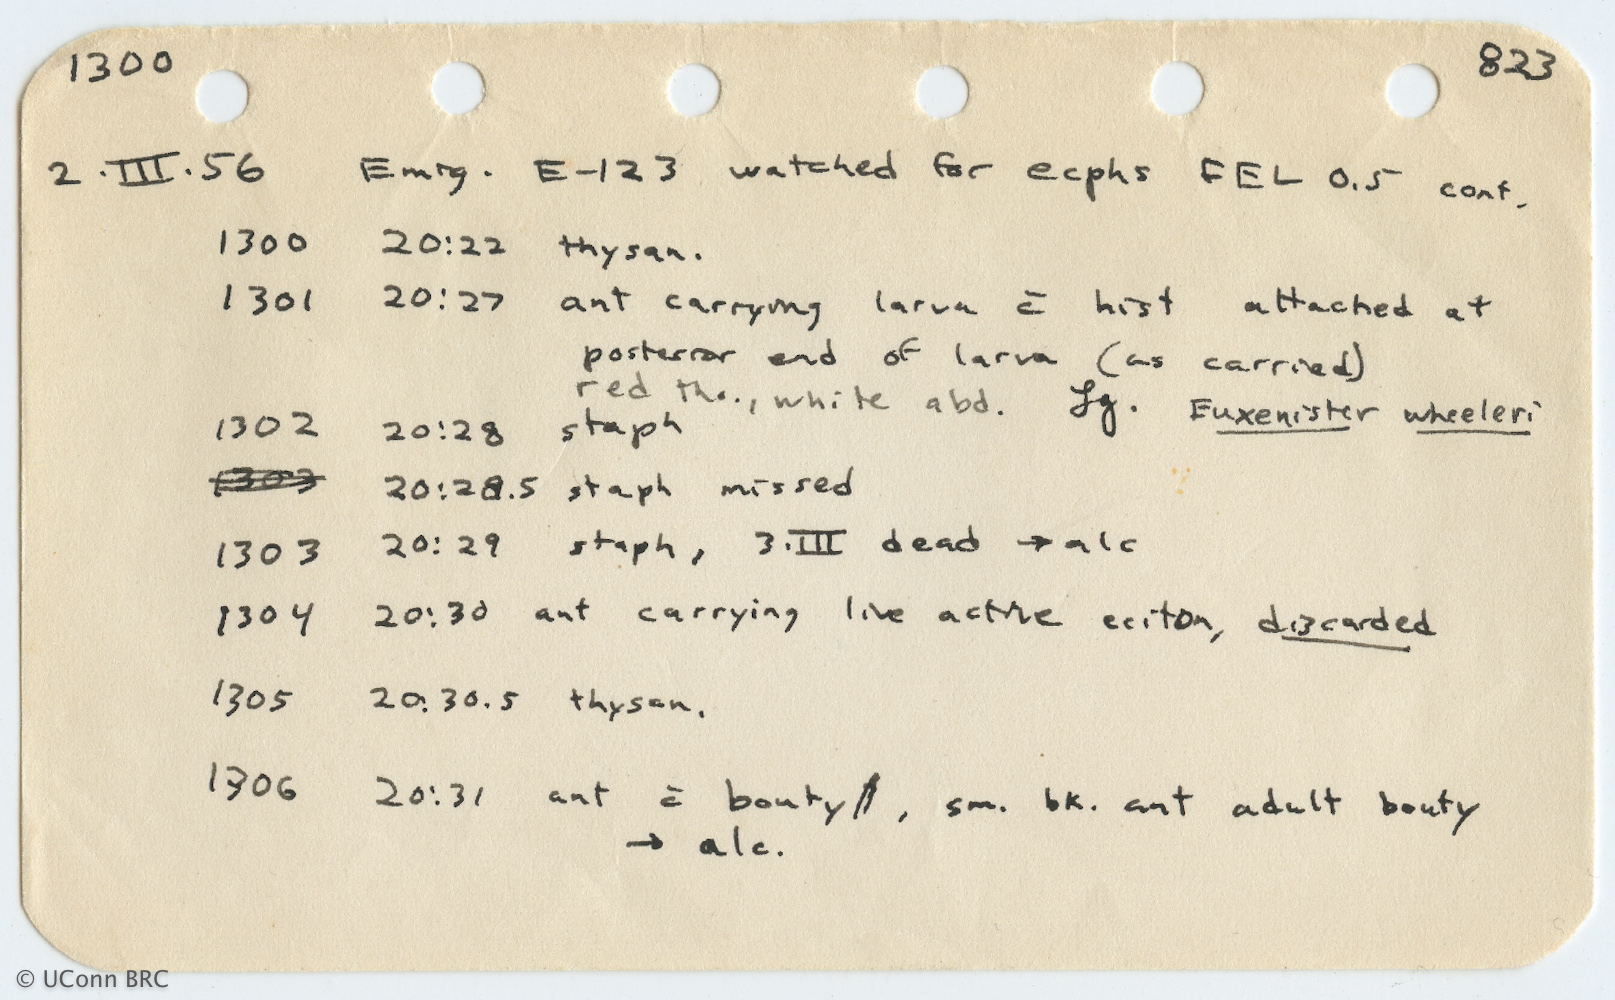 1300 823
2.III.56 Emig. E-123 watched for ecphs FEL 0.5 cont.
1300 20:22 thysan.
1301 20:27 ant carrying larva c̄ hist attached at
posterior end of larva (as carried)
red tho., white abd. Lg. Euxenister wheeleri
1302 20:28 staph
1303 20:28.5 staph missed
1303 20:29 staph, 3.III dead → alc
1304 20:30 ant carrying live active eciton, discarded
1305 20:30.5 thysan.
1306 20:31 ant c̄ bouty, sm. bk. ant adult bouty
→ alc.
© UConn BRC